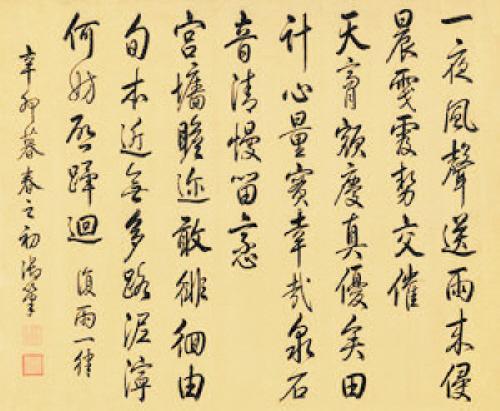 一夜風聲送雨来侵
晨勢交催
天膏額慶真優矣田
計心量實幸哉泉石
音清慢留意
宮墻瞻迩敢徘徊由
旬本近無多路泥濘
何妨啓蹕迴 復雨一律
辛卯暮春之初御筆